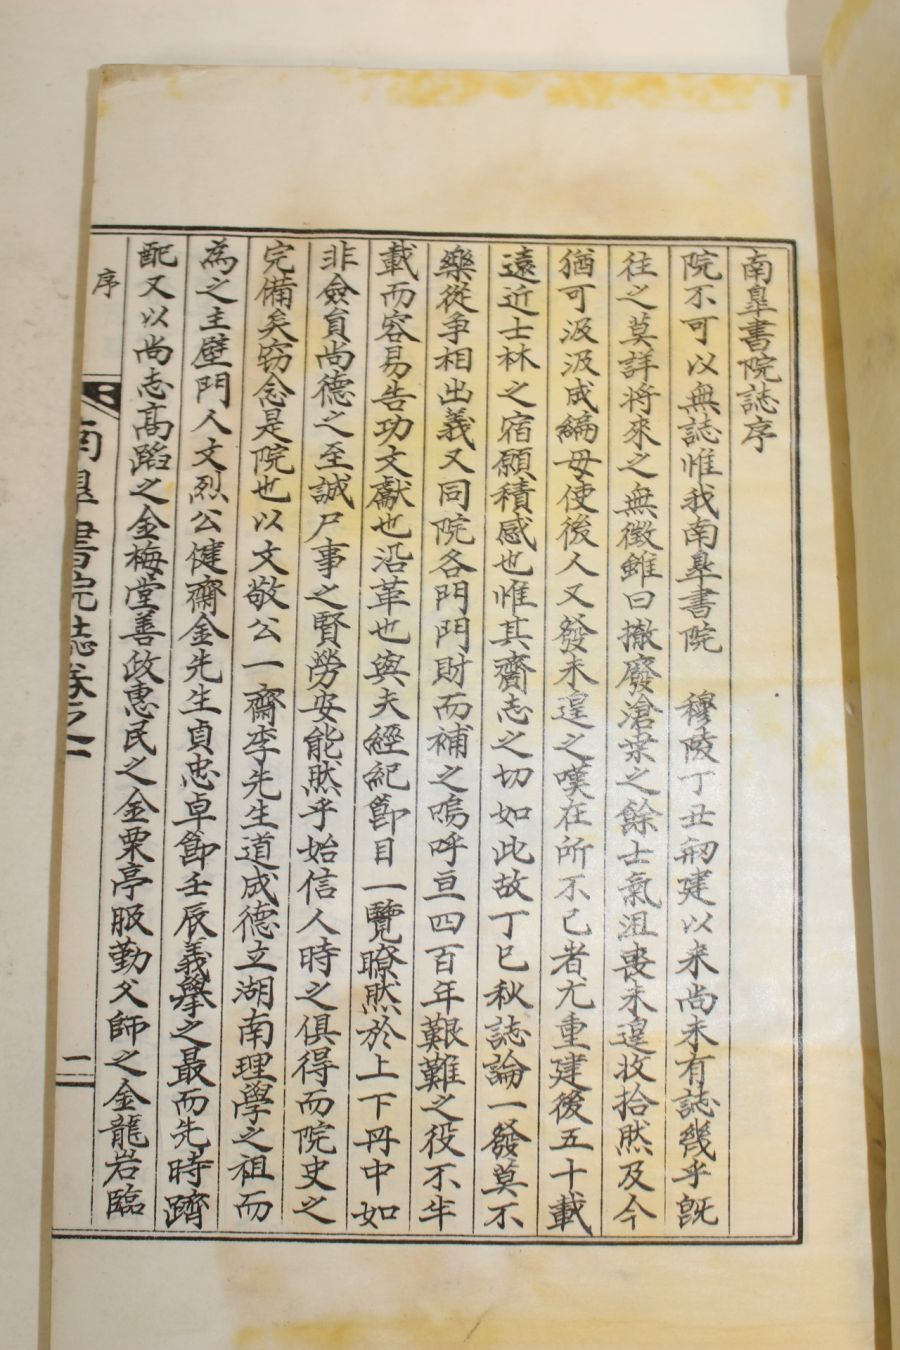 南臯書院誌序
院不可以無誌惟我南臯書院 穆陵丁丑刱建以来尚未有誌幾乎旣
往之莫詳将來之無徵雖曰撤廢滄桒之餘士氣沮喪未遑收拾然及今
猶可汲汲成編毋使後人又發未遑之嘆在所不已者尤重建後五十載
遠近士林之宿願積感也惟其齎志之切如此故丁巳秋誌論一發莫不
樂從争相出義又同院各門門財而補之嗚呼亘四百年艱難之役不半
載而容易告功文獻也沿革也與夫經紀節目一覽瞭然於上下冊中如
非僉員尚德之至誠尸事之賢勞安能然乎始信人時之俱得而院史之
完備矣窃念是院也以文敬公一齋李先生道成德立湖南理學之祖而
為之主壁門人文烈公健齋金先生貞忠卓節壬辰義擧之最而先時躋
配又以尚志髙蹈之金梅堂善政惠民之金栗亭服勤父師之金龍岩臨
序
南臯書院誌卷之一
一